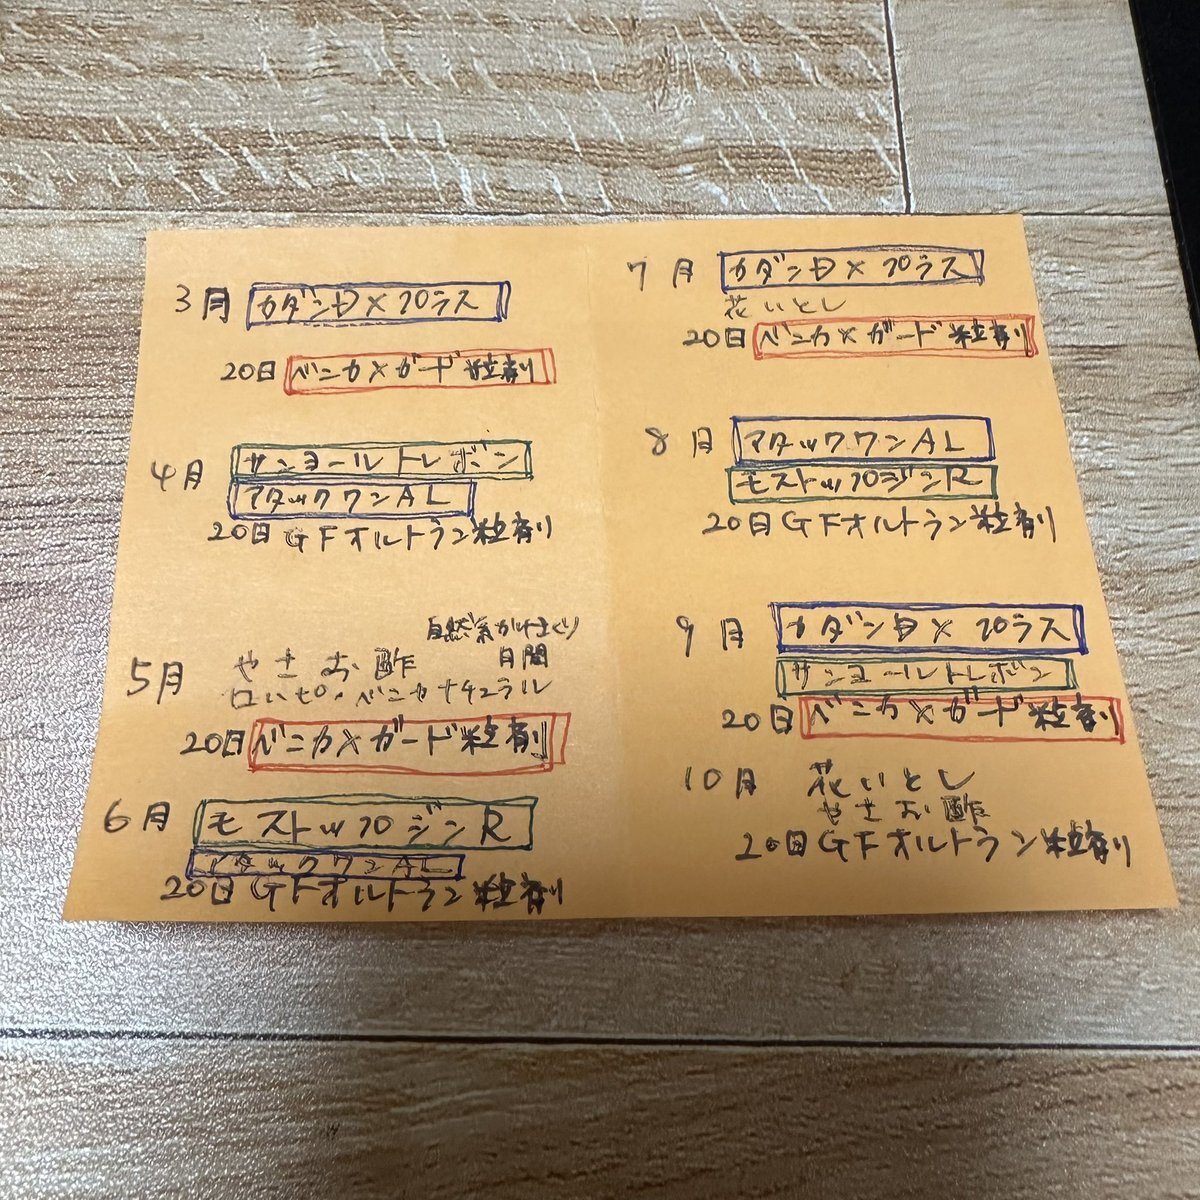 3月 カダンDXプラス
20日 ベニカXガード粒剤
4月 サンヨールトレボン
アタックワンAL
20日 GFオルトラン粒剤
5月 やさお酢
ロハピ・ベニカナチュラル
月間
20日 ベニカXガード粒剤
6月 モストップジンR
アタックワンAL
20日 GFオルトラン粒剤
7月 カダンDXプラス
花いとし
20日 ベニカXガード粒剤
8月 アタックワンAL
モストップジンR
20日 GFオルトラン粒剤
9月 カダンDXプラス
サンヨールトレボン
20日 ベニカXガード粒剤
10月 花いとし
やさお酢
20日 GFオルトラン粒剤